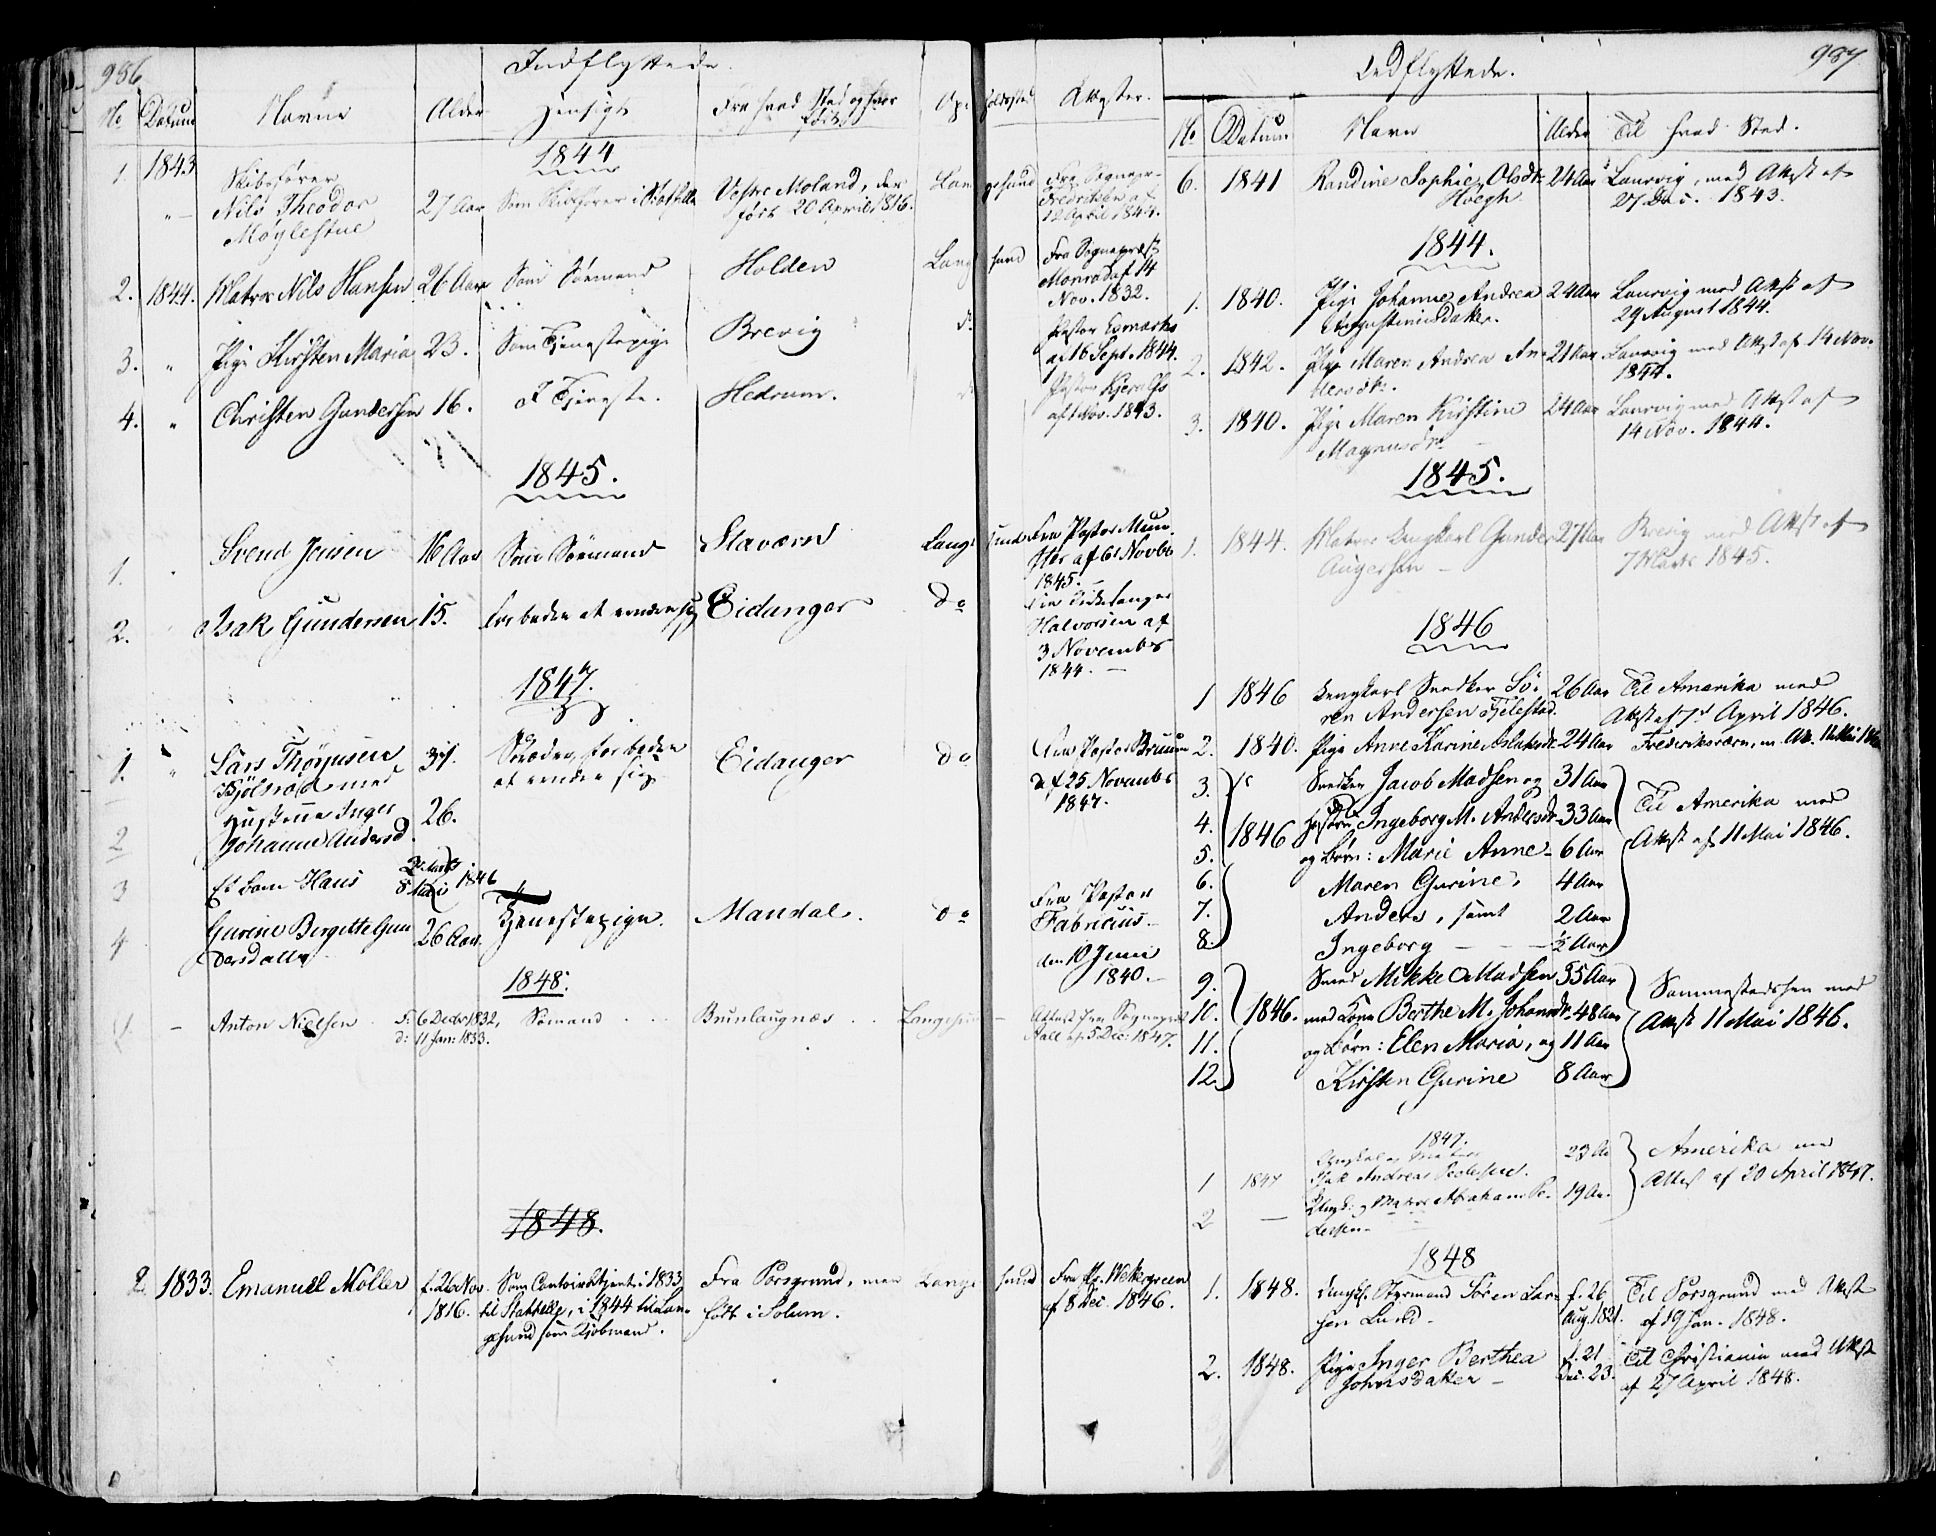 986
Indflyttede.
No Datum Navne Alder Hensigt Fra hvad Sted og hvor født Opholdssted Attester.
1844
1. 1843 Skibsfører
Nils Theodor
Møglestue
27 Aar Som Skibsfører i
Vestre Moland, der
født 20 April 1816.
Langesund
Fra Sognepr.
Fredriksen af
12 April 1844.
2. 1844. Matros Nils Hansen 26 Aar Som Sømand Holden Langesund
Fra Sognepræst
Monrad af 14
Nov. 1832.
3. " Pige Kirsten Maria 23. Som Tjenestepige Brevig do
Pastor Esmarks
af 16 Sept. 1844.
4. " Christen Gundersen 16. I Tjeneste. Hedrum.
Pastor
af 1 Nov. 1843.
1845.
1. Svend Jensen 16 Aar Som Sømand Staværn Langesund
Fra Pastor Mun
ster af 6 Novbr
1845.
2. Isak Gundersen 15. for bedre at ernære sig Eidanger do
Halvorsen af
3 November
1844.
1847.
1. " Lars Thorjusen 31.
med
Hustrue Inger
2 Johanne Andersd. 26.
Skræder, for bedre
at ernære sig.
Eidanger do
Fra Pastor Bruun
af 25 November
1847.
3 Et Barn Hans
1846
4 Gurine Birgitte Gun
dersdatter 26 Aar. Tjenestepige. Mandal. do
Fra Pastor
Fabricius
den 10 Juni
1840.
1848.
Anton Nielsen f: 6 Decbr 1832,
d: 11 Jan: 1833.
Sømand Brunlaugnæs Langesund
Attest fra Sognepræst
Hall af 5 Dec: 1847.
1848.
2. 1833. Emanuel Møller f. 26 Nov.
1816.
Som Contoirbetjent i 1833
til Stathelle, i 1844 til Lan
gesund som Kjøbmand.
Fra Porsgrund, men
født i Solum.
Langesund
Fra Pr. Wettergreen
af 8 Dec. 1846.
987
Udflyttede.
No Datum Navn Alder Til hvad Sted.
6. 1841 Randine Sophie Olsdtr
Høegh
24 Aar Laurvig, med Attest af
27 Dec. 1843.
1844.
1. 1840. Pige Johanne Andrea
Augustinusdatter.
24 Aar Laurvig med Attest af
29 August 1844.
2. 1842. Pige Maren Andrea An
dersdtr.
21 Aar Laurvig med Attest af 14 Nov.
1844.
3. 1840. Pige Maren Kirstine
Magnusdtr
24 Aar Laurvig med Attest af
14 Nov. 1844.
1845.
1. 1844. Matros Ungkarl Gunder
Augersen
27 Aar Brevig med Attest af
7 Marts 1845.
1846
1 1846 Ungkarl Snedker Sø
ren Andersen Fjelestad.
26 Aar Til Amerika med
Attest af 7d April 1846.
2. 1840. Pige Anne Karine Aslaksdtr 24 Aar Frederiksværn, m. Att. 11 Mai 1846
3. Snedker Jacob Madsen og 31 Aar
4. 1846 Hustru Ingeborg M. Andersdtr 33 Aar
5. og Børn: Marie Anne 6 Aar
6. Maren Gurine, 4 Aar
7. Anders, samt 2 Aar
8. Ingeborg ½ Aar
Til Amerika med
Attest af 11 Mai 1846.
9. Smed Mikkel Madsen 35 Aar
10. 1846. med Kone Berthe M. Johansdtr 48 Aar
11. og Børn: Elen Maria, og 11 Aar
12. Kirsten Gurine 8 Aar
Sammestedshen med
Attest 11 Mai 1846.
1847.
1 1847 Ungkarl og Matros
Isak Andreas Pedersen.
23 Aar
2 — Ungk. og Matros Abraham Pe
dersen
19 Aar
Amerika med
Attest af 20 April 1847.
1848
1. 1848. Ungk. Styrmand Søren Lar
sen Lund
f. 26
Aug 1821.
Til Porsgrund med Attest
af 19 Jan. 1848.
2. 1848. Pige Inger Berthea
Johnsdatter
f. 21
Dec. 23.
Til Christiania med Attest
af 27 April 1848.